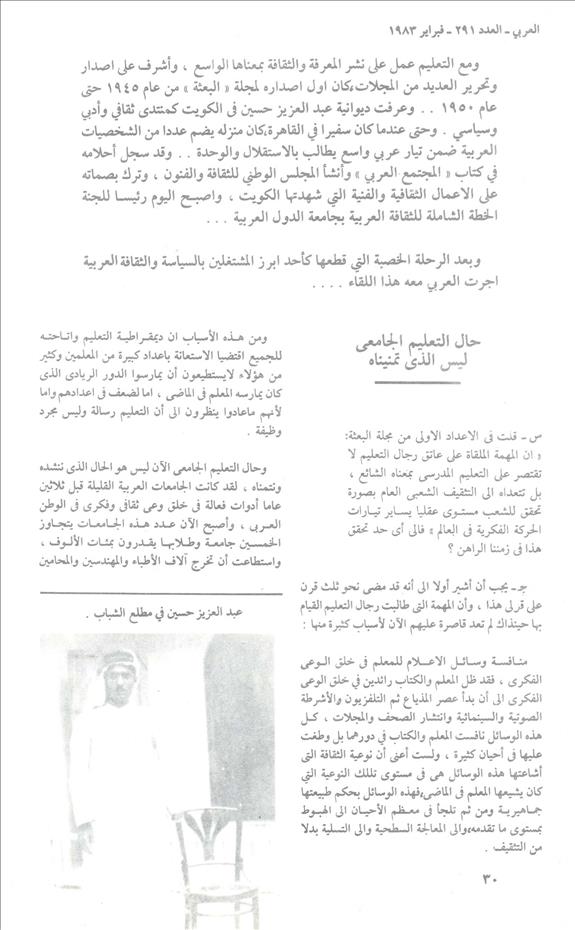 العربي - العدد ٢٩١ - فبراير ١٩٨٣
ومع التعليم عمل على نشر المعرفة والثقافة بمعناها الواسع ، وأشرف على اصدار
وتحرير العديد من المجلات،كان اول اصداره لمجلة « البعثة » من عام ١٩٤٥ حتى
عام ١٩٥٠ . . وعرفت ديوانية عبد العزيز حسين فى الكويت كمنتدى ثقافي وأدبي
وسياسي . وحتى عندما كان سفيرا في القاهرة،كان منزله يضم عددا من الشخصيات
العربية ضمن تيار عربي واسع يطالب بالاستقلال والوحدة . . وقد سجل أحلامه
في كتاب « المجتمع العربي » وأنشأ المجلس الوطني للثقافة والفنون ، وترك بصماته
على الاعمال الثقافية والفنية التي شهدتها الكويت ، واصبح اليوم رئيسا للجنة
الخطة الشاملة للثقافة العربية بجامعة الدول العربية . . .
وبعد الرحلة الخصبة التي قطعها كأحد ابرز المشتغلين بالسياسة والثقافة العربية
اجرت العربي معه هذا اللقاء . . . .
حال التعليم الجامعى
ليس الذى تمنيناه
س - قلت فى الاعداد الاولى من مجلة البعثة:
« ان المهمة الملقاة على عاتق رجال التعليم لا
تقتصر على التعليم المدرسى بمعناه الشائع ،
بل تتعداه الى التثقيف الشعبى العام بصورة
تحقق للشعب مستوى عقليا يساير تيارات
الحركة الفكرية فى العالم » فالى أى حد تحقق
هذا فى زمننا الراهن ؟
جـ - يجب أن أشير أولا الى أنه قد مضى نحو ثلث قرن
على قولى هذا ، وأن المهمة التى طالبت رجال التعليم القيام
بها حينذاك لم تعد قاصرة عليهم الآن لأسباب كثيرة منها :
منافسة وسائل الاعلام للمعلم فى خلق الوعى
الفكرى ، فقد ظل المعلم والكتاب رائدين في خلق الوعى
الفكرى الى أن بدأ عصر المذياع ثم التلفزيون والأشرطة
الصوتية والسينمائية وانتشار الصحف والمجلات ، كل
هذه الوسائل نافست المعلم والكتاب في دورهما بل وطغت
عليها فى أحيان كثيرة ، ولست أعنى أن نوعية الثقافة التى
أشاعتها هذه الوسائل هى فى مستوى تلك النوعية التي
كان يشيعها المعلم فى الماضى،فهذه الوسائل بحكم طبيعتها
جماهيرية ومن ثم تلجأ فى معظم الأحيان الى الهبوط
بمستوى ما تقدمه،والى المعالجة السطحية والى التسلية بدلا
من التثقيف .
ومن هذه الأسباب ان ديمقراطية التعليم واتاحته
للجميع اقتضيا الاستعانة باعداد كبيرة من المعلمين وكثير
من هؤلاء لايستطيعون أن يمارسوا الدور الريادى الذى
كان يمارسه المعلم فى الماضى ، اما لضعف فى اعدادهم واما
لأنهم ماعادوا ينظرون الى أن التعليم رسالة وليس مجرد
وظيفة .
وحال التعليم الجامعى الآن ليس هو الحال الذى ننشده
ونتمناه ، لقد كانت الجامعات العربية القليلة قبل ثلاثين
عاما أدوات فعالة فى خلق وعى ثقافى وفكرى فى الوطن
العربى ، وأصبح الآن عدد هذه الجامعات يتجاوز
الخمسين جامعة وطلابها يقدرون بمئات الألوف ،
واستطاعت أن تخرج آلاف الأطباء والمهندسين والمحامين
عبد العزيز حسين في مطلع الشباب .
٣٠